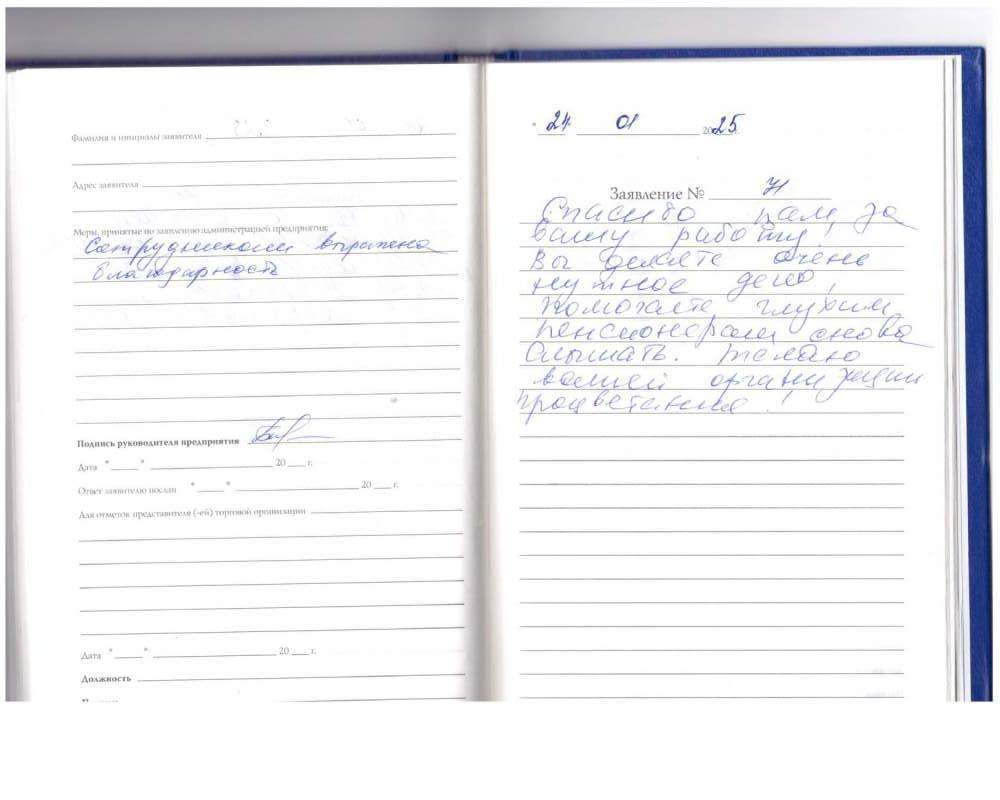 Фамилия и инициалы заявителя
Адрес заявителя
Меры, принятые по заявлению администрацией предприятия:
Сотрудникам выражена
благодарность
Подпись руководителя предприятия
Дата " " 20 г.
Ответ заявителю послан " " 20 г.
Для отметок представителя (-ей) торговой организации
Дата " " 20 г.
Должность
" 24 01 2025
Заявление №
Спасибо вам за
вашу работу!
Вы делаете очень
нужное дело,
помогаете глухим
пенсионерам снова
слышать. Желаю
вашей организации
процветания!